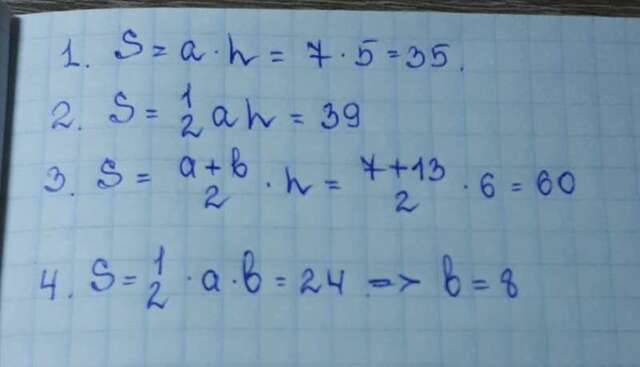 1. S = a · h = 7 · 5 = 35.
2. S = 1/2 a h = 39
3. S = a+b/2 · h = 7+13/2 · 6 = 60
4. S = 1/2 · a · b = 24 => b = 8